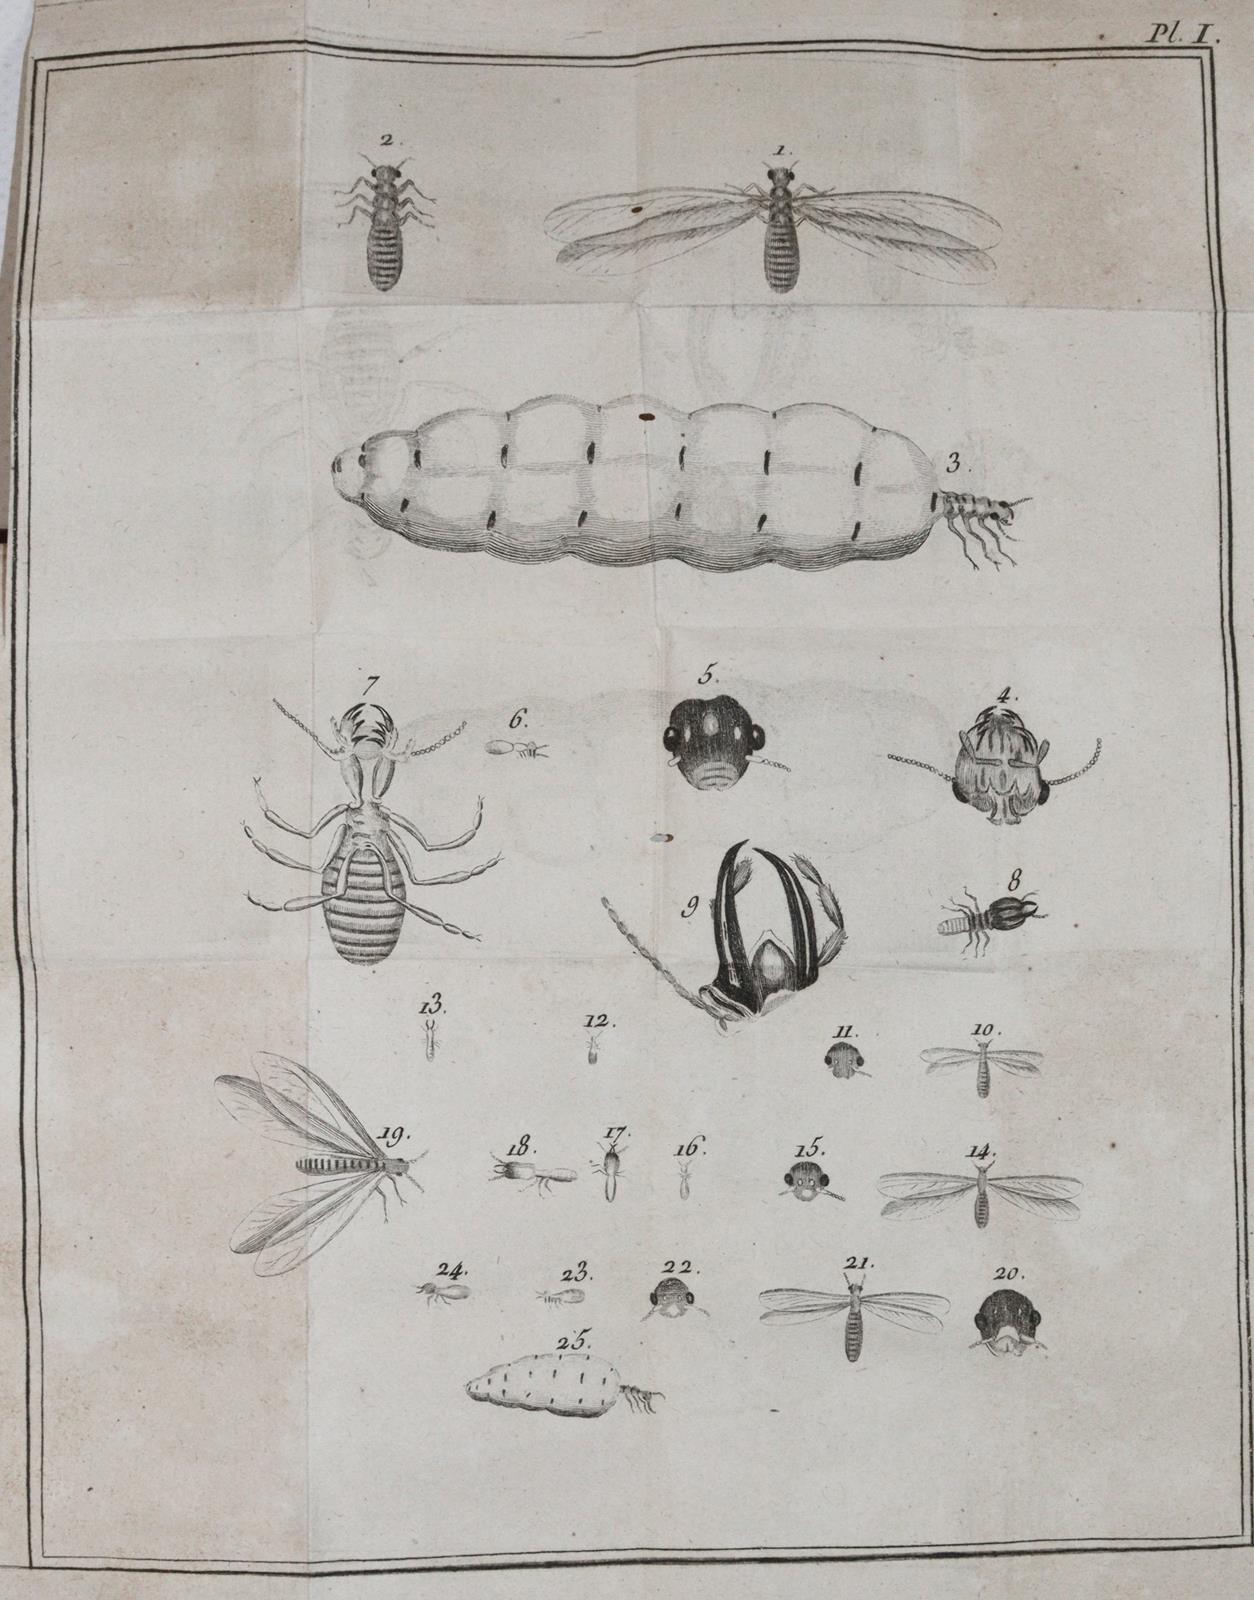 Pl. I.
2.
1.
3.
7
6.
5.
4.
9
8
13.
12.
11.
10.
19.
18.
17.
16.
15.
14.
24.
23.
22.
21.
20.
25.